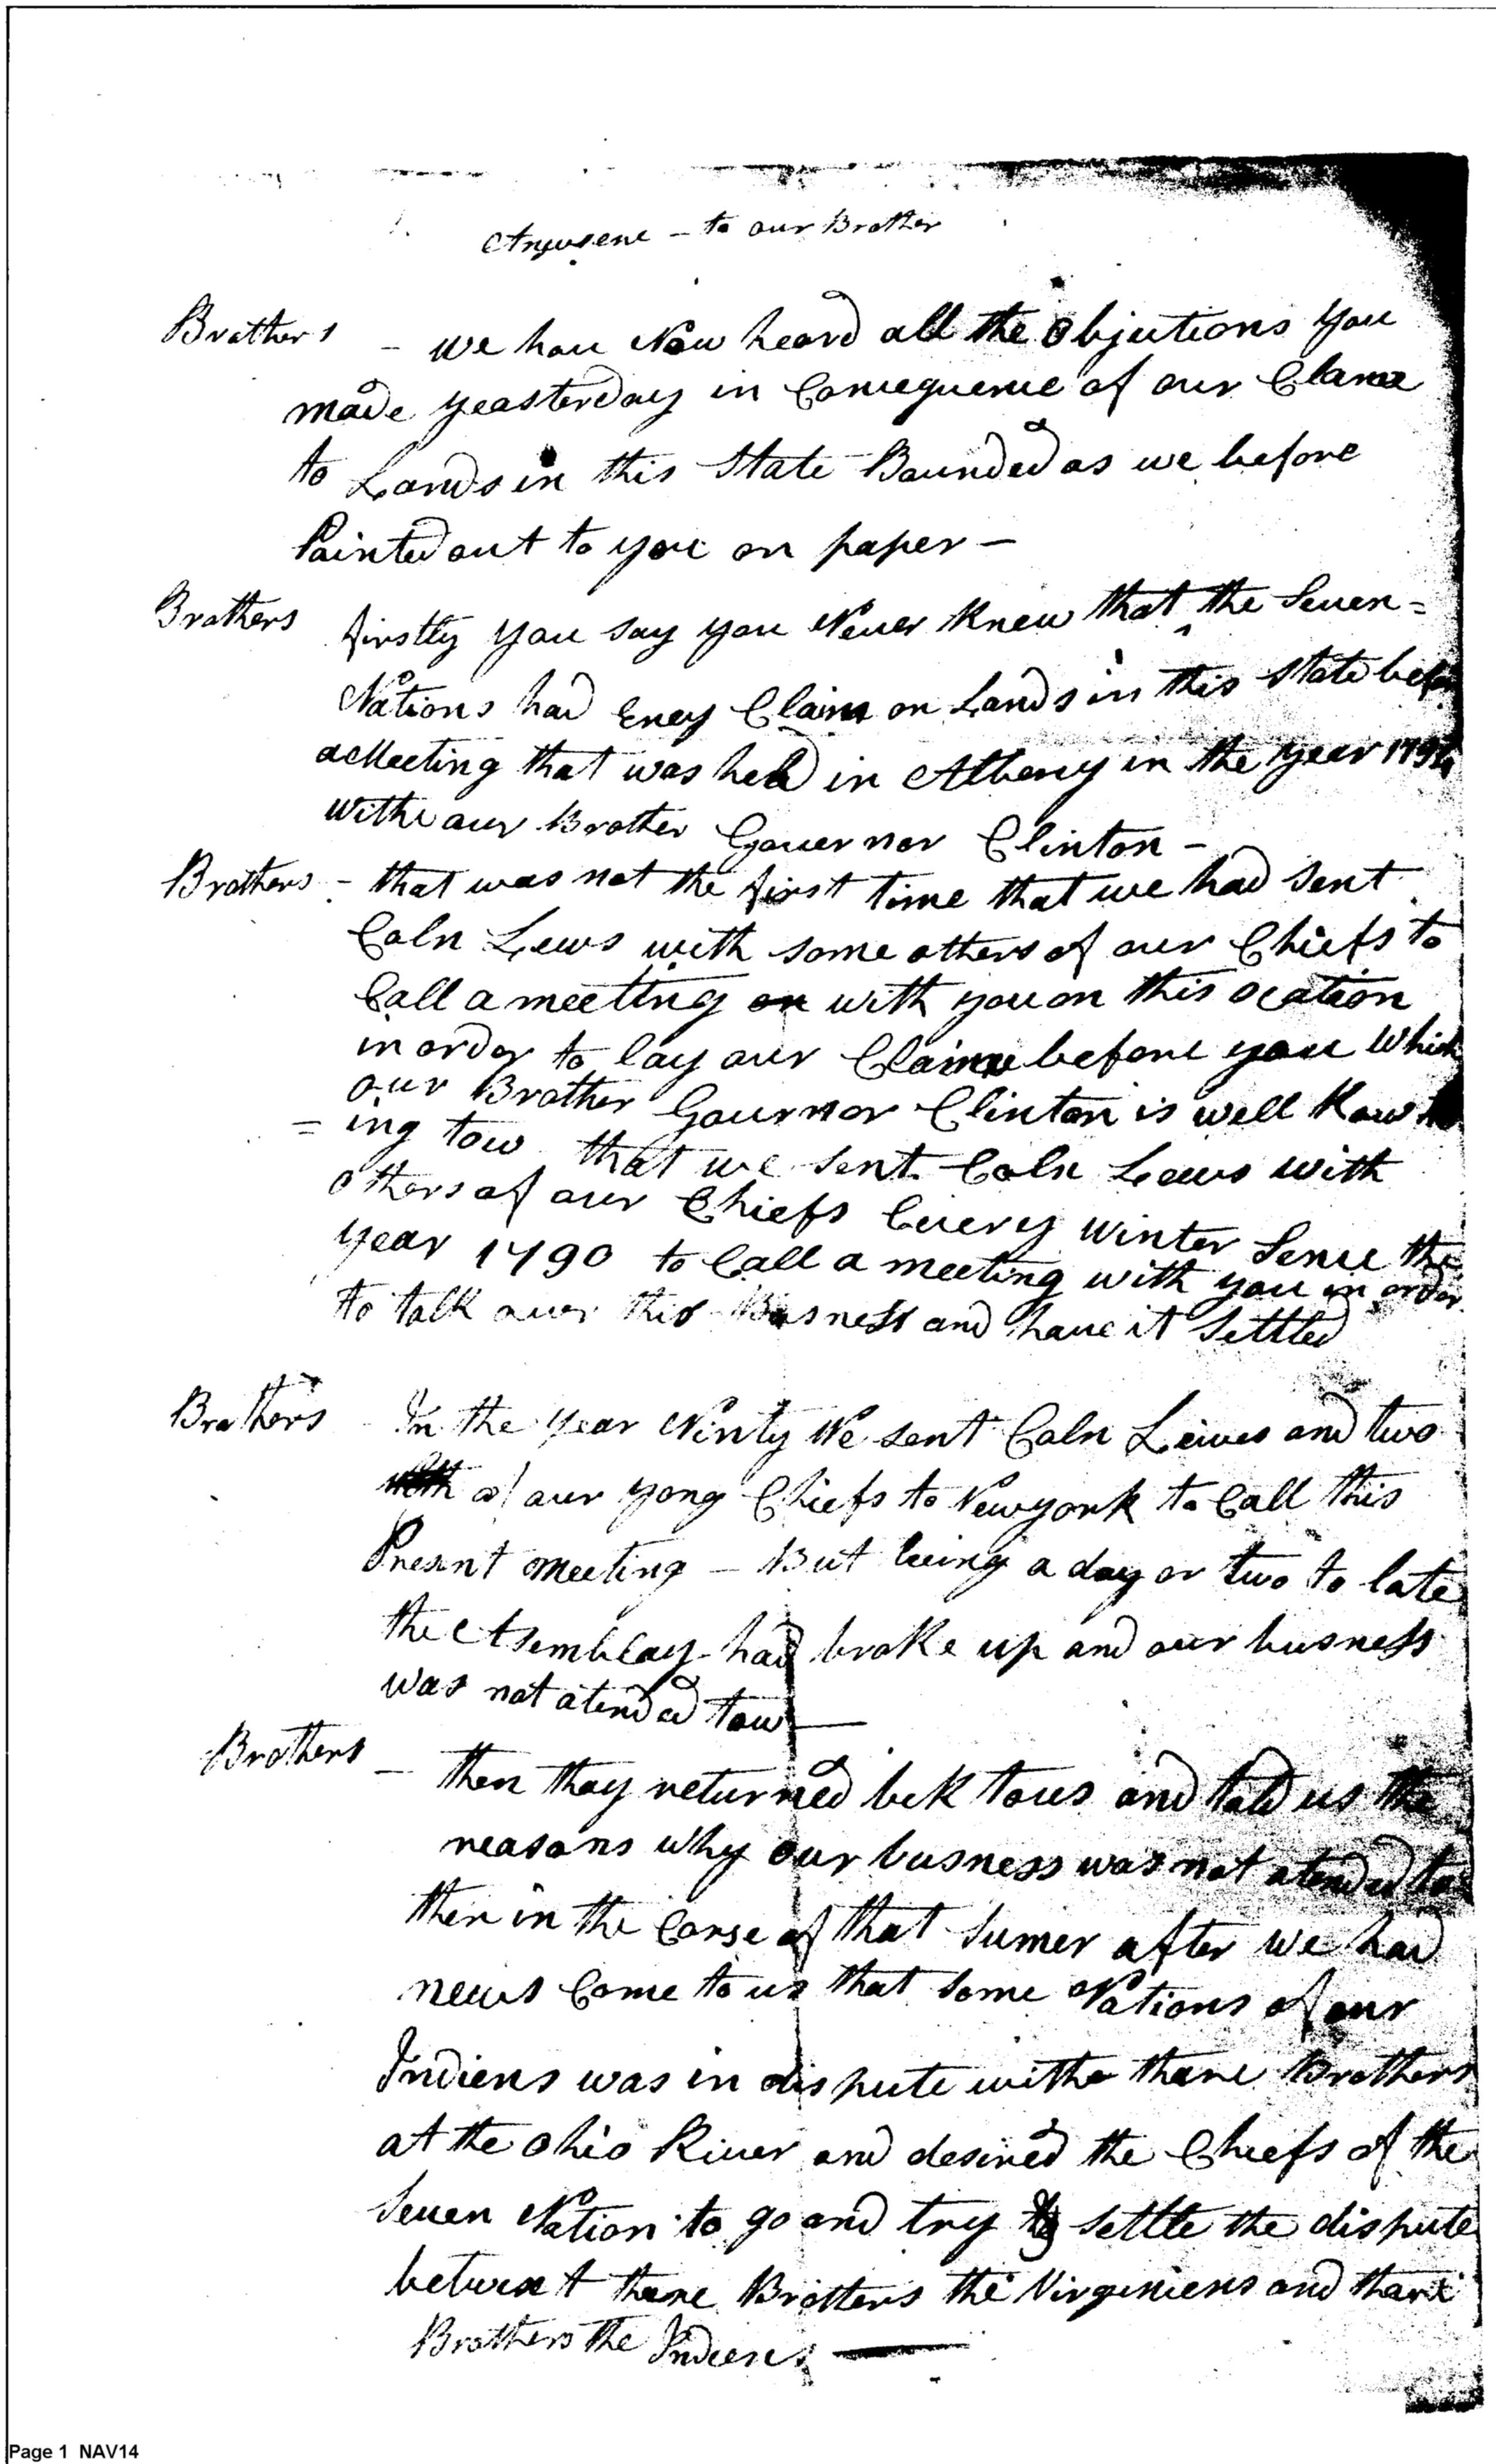 to our Brother
Brothers - we have Now heard all the Objections you
made yeasterday in Consequence of our Clame
to Lands in this State Bounded as we before
Pointed out to you on paper -
Brothers firstly you say you Never Knew that the Seven =
Nations had Eney Claim on Lands in this State
a Meeting that was held in Albany in the year
withe our Brother Governor Clinton -
Brothers - that was not the first time that we had sent
Coln Lews with some others of our Chiefs to
Call a meetting on with you on this ocation
in order to lay our Claime before you which
our Brother Gournor Clinton is well
= ing tow that we sent Coln Lews with
others of our Chiefs Every winter Sence the
year 1790 to Call a meeting with you in order
to talk over this Busness and have it Settled
Brothers In the year Ninty We sent Coln Leiwes and two
of our yong Chiefs to Newyork to Call this
Present Meeting - But being a day or two to late
the Asemblay had broke up and our busness
was not atended tow
Brothers - then thay returned bek to us and told us the
reasons why our busness was not atended to
then in the Corse of that Sumer after we had
news Come to us that Some Nations of our
Indiens was in dispute withe thare Brothers
at the Ohio River and desired the Chiefs of the
Seven Nation to go and try to Settle the dispute
betwext thare Brothers the Virginiens and thare
Brothers the Indiens
Page 1 NAV14